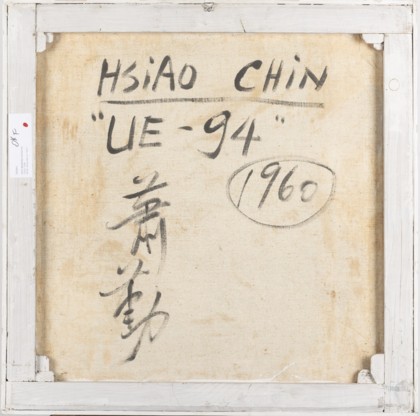 HSiAO CHiN
"UE-94"
1960
蕭勤